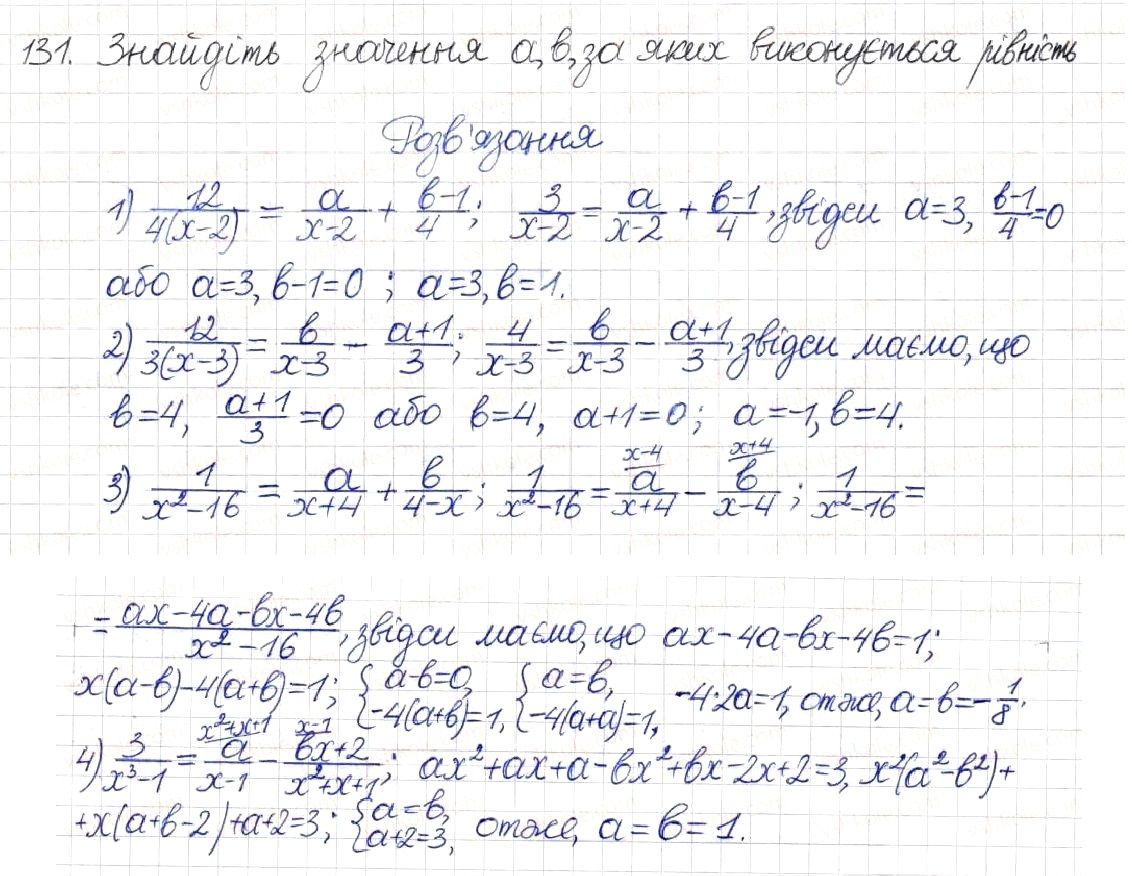 131. Знайдіть значення а, в, за яких виконується рівність
Розв'язання
1) 12/4(x-2) = a/x-2 + в-1/4; 3/x-2 = a/x-2 + в-1/4, звідси a=3, в-1/4=0
або a=3, в-1=0 ; a=3, в=1.
2) 12/3(x-3) = в/x-3 - a+1/3; 4/x-3 = в/x-3 - a+1/3, звідси маємо, що
в=4, a+1/3=0 або в=4, a+1=0; a=-1, в=4.
3) 1/x²-16 = a/x+4 + в/4-x; 1/x²-16 = x-4 a/x+4 - x+4 в/x-4; 1/x²-16 =
= ax-4a-вx-4в/x²-16, звідси маємо, що ax-4a-вx-4в=1;
x(a-в)-4(a+в)=1; { a-в=0, -4(a+в)=1, { a=в, -4(a+a)=1, -4·2a=1, отже, a=в=-1/8.
4) 3/x³-1 = x²+x+1 a/x-1 - x-1 вx+2/x²+x+1; ax²+ax+a-вx²+вx-2x+2=3, x²(a²-в²)+
+x(a+в-2)+a+2=3; { a=в, a+2=3, отже, a=в=1.